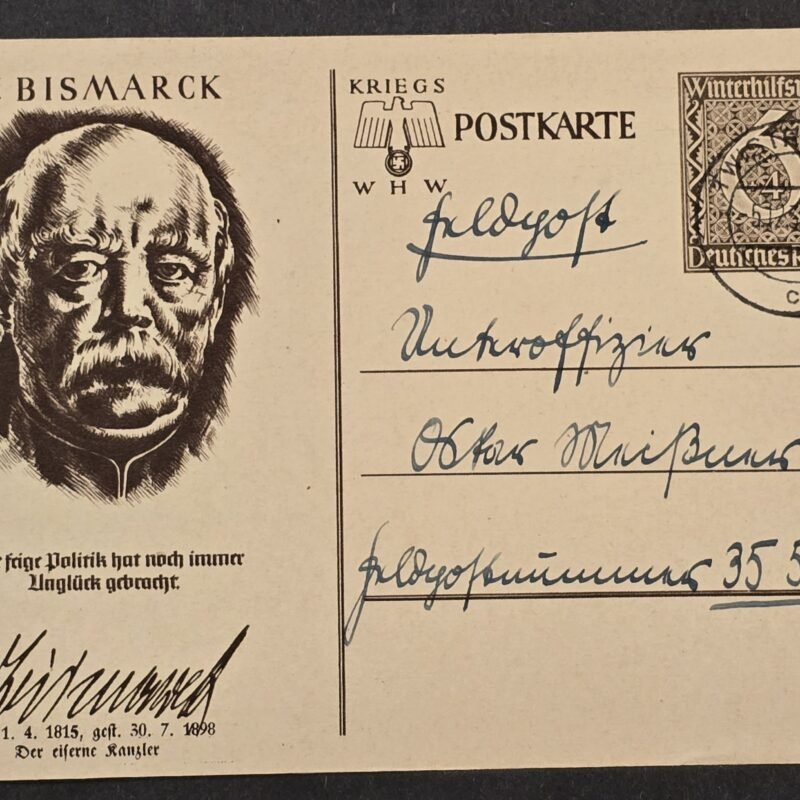 BISMARCK
feige Politik hat noch immer
Unglück gebracht.
1. 4. 1815, gest. 30. 7. 1898
Der eiserne Kanzler
KRIEGS
WHW
POSTKARTE
Winterhilfs
Deutsches R
Feldpost
Unteroffizier
Oskar Meißner
Feldpostnummer 35 5